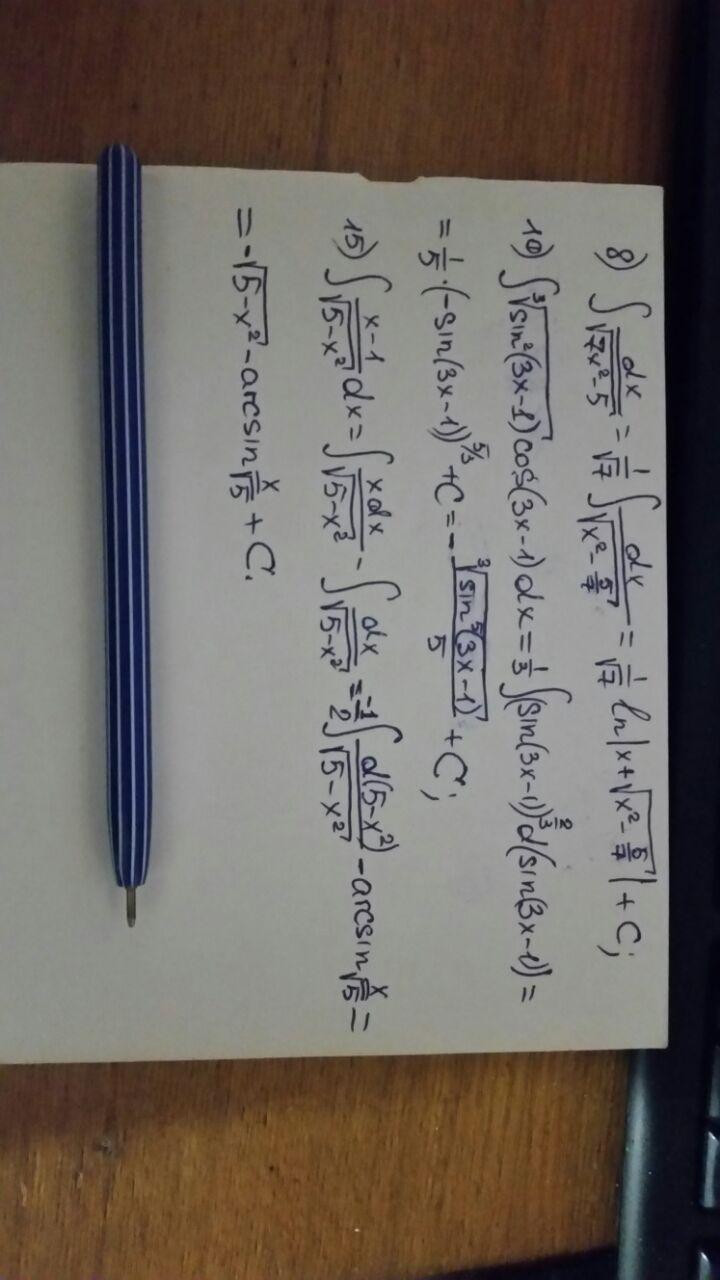 8) ∫ dx/√(7x²-5) = 1/√7 ∫ dx/√(x²-5/7) = 1/√7 ln|x+√(x²-5/7)| + C;
10) ∫ ∛(sin²(3x-1)) cos(3x-1) dx = 1/3 ∫(sin(3x-1))^(2/3) d(sin(3x-1)) =
= 1/5 · (-sin(3x-1))^(5/3) + C = - ∛(sin⁵(3x-1))/5 + C;
15) ∫ (x-1)/√(5-x²) dx = ∫ xdx/√(5-x²) - ∫ dx/√(5-x²) = -1/2 ∫ d(5-x²)/√(5-x²) - arcsin x/√5 =
= -√(5-x²) - arcsin x/√5 + C.